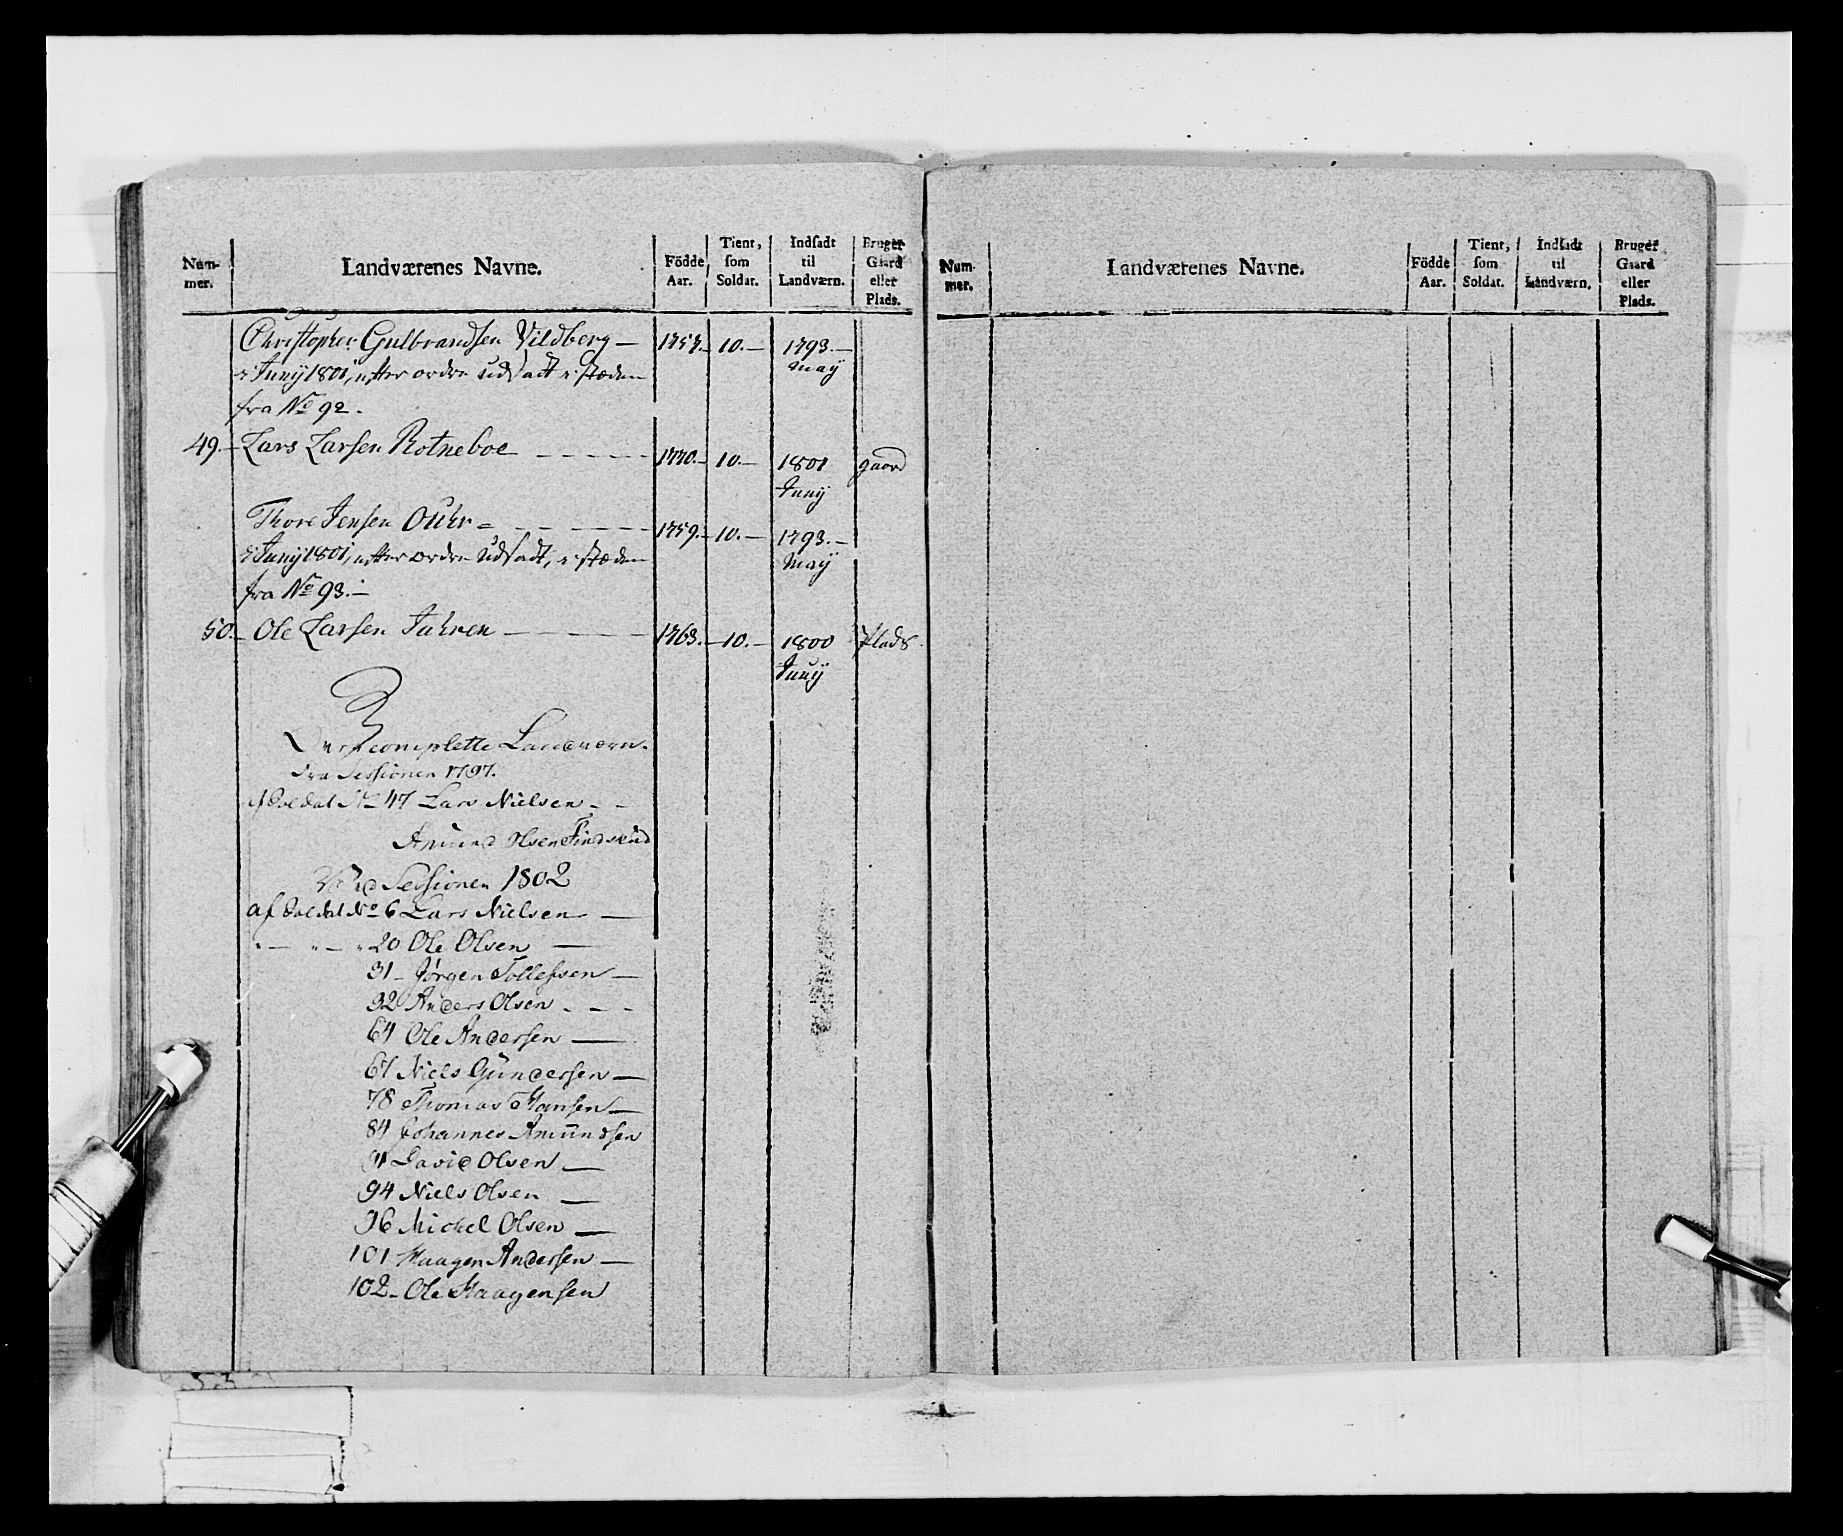 Num-
mer.
Landværenes Navne.
Födde
Aar.
Tient,
som
Soldat.
Indsadt
til
Landværn.
Bruger
Gaard
eller
Plads.
Christopher Gulbrandsen Vildberg — 1757.— 10.— 1793.—
Junij 1801, efter ordre udsadt i stæden May
fra No 92.
49.— Lars Larsen Rotneboe — — — — 1770.— 10.— 1801 gaard
Junij
Thore Jensen Ouhr — — — — 1759.— 10.— 1793.—
Junij 1801, efter ordre udsadt, i stæden May
fra No 93.—
50.— Ole Larsen Jahren — — — — 1763.— 10.— 1800 Plads.
Junij
complette Landværn.
Fra Sessionen 1797.
af Soldat No 47 Lars Nielsen - -
Amund Olsen
Ved Sessionen 1802
af Soldat No 6 Lars Nielsen —
" — " — " 20 Ole Olsen —
31 - Jørgen Tollefsen —
32 Anders Olsen - - -
64 Ole Andersen —
67 Niels Gundersen —
78 Thomas Hansen —
84 Johannes Amundsen
91 David Olsen —
94 Niels Olsen —
96 Mickel Olsen —
101 Haagen Andersen —
102 - Ole Haagensen
Num-
mer.
Landværenes Navne.
Födde
Aar.
Tient,
som
Soldat.
Indsadt
til
Landværn.
Bruger
Gaard
eller
Plads.